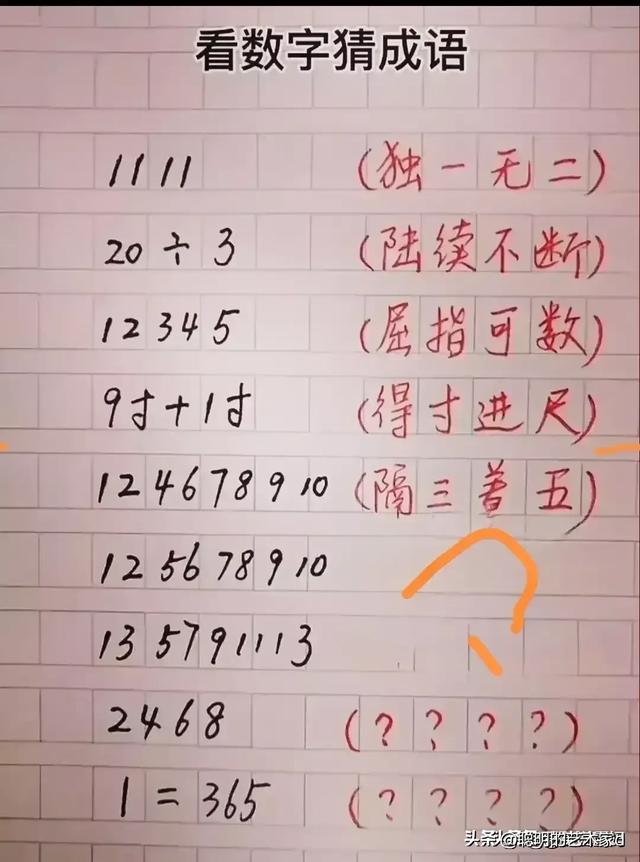 看数字猜成语
11 11 (独一无二)
20 ÷ 3 (陆续不断)
12345 (屈指可数)
9寸+1寸 (得寸进尺)
1 2 4 6 7 8 9 10 (隔三着五)
1 2 5 6 7 8 9 10
1 3 5 7 9 11 13
2468 (????)
1 = 365 (????)
头条